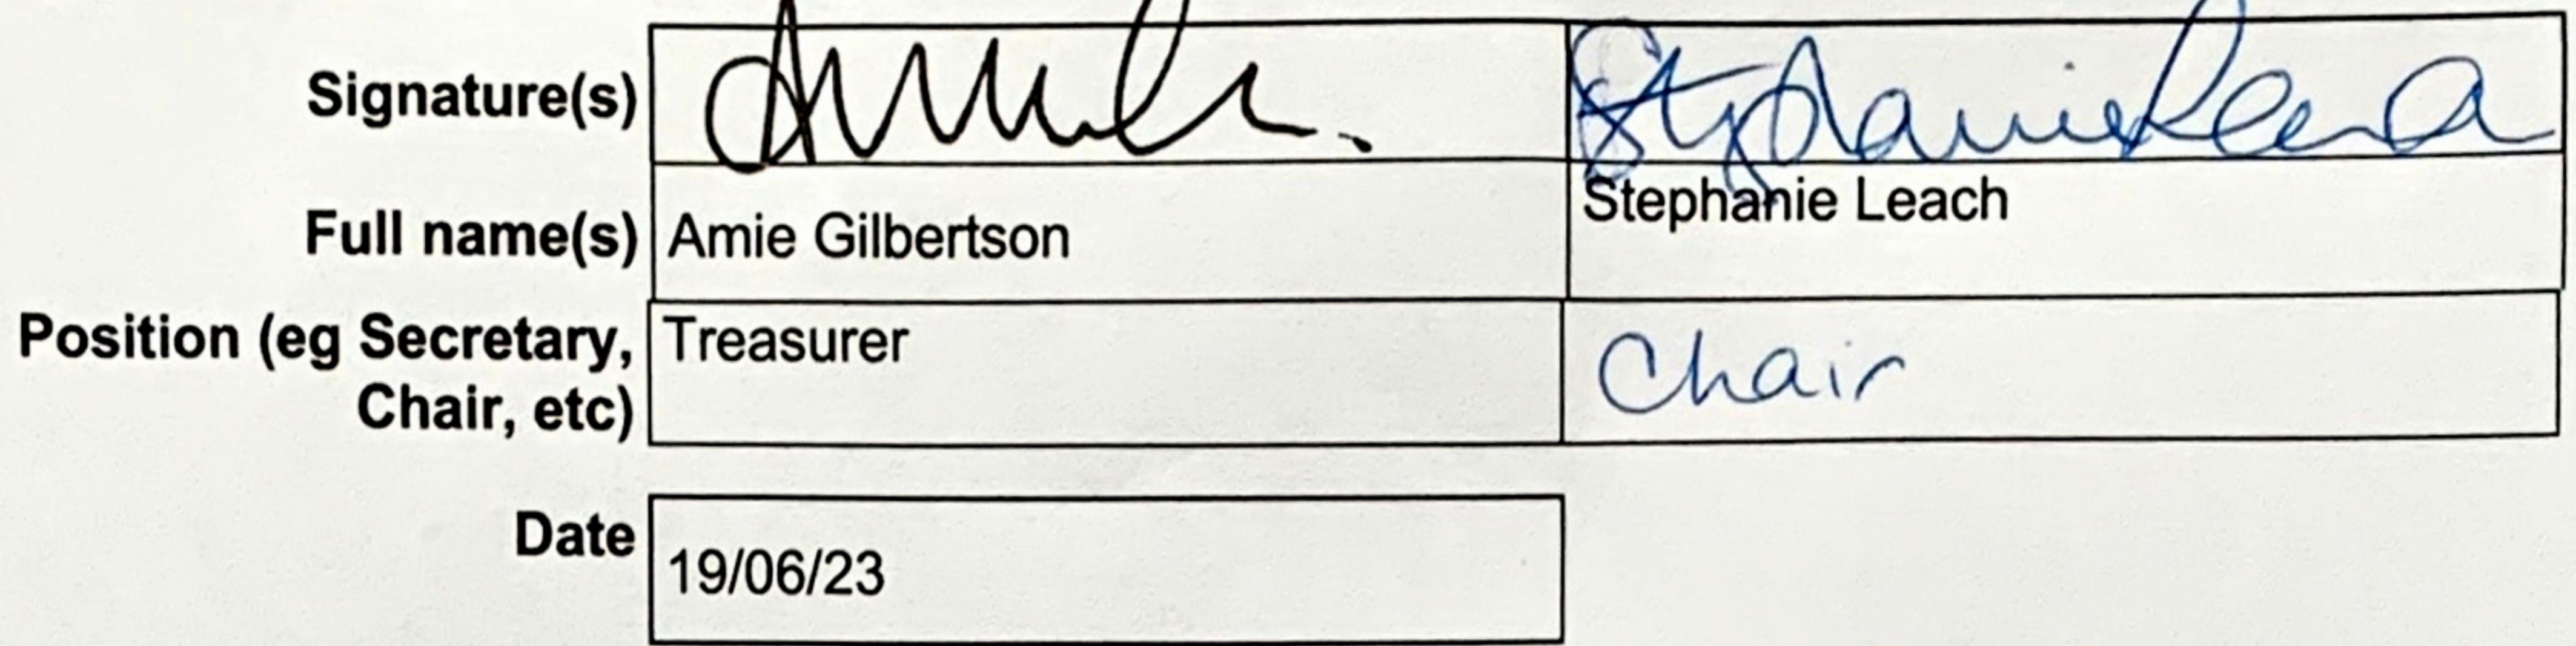 Signature(s)
Stephanie Leach
Full name(s) Amie Gilbertson Stephanie Leach
Position (eg Secretary, Treasurer Chair
Chair, etc)
Date 19/06/23